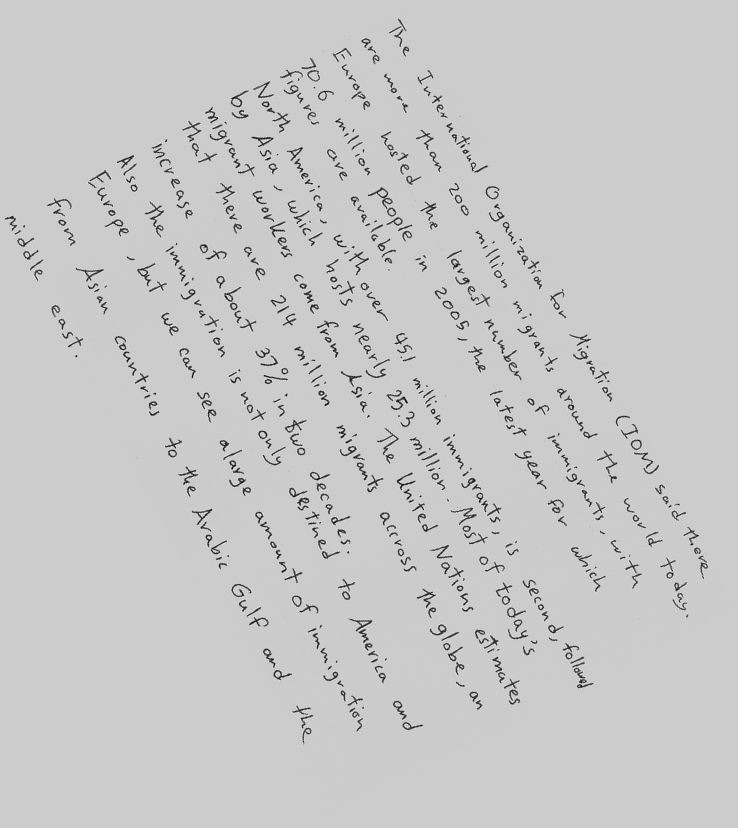 The International Organization for Migration (IOM) said there
are more than 200 million migrants around the world today.
Europe hosted the largest number of immigrants, with
70.6 million people in 2005, the latest year for which
figures are available.
North America, with over 45.1 million immigrants, is second, followed
by Asia, which hosts nearly 25.3 million. Most of today's
migrant workers come from Asia. The United Nations estimates
that there are 214 million migrants accross the globe, an
increase of about 37% in two decades.
Also the immigration is not only destined to America and
Europe, but we can see alarge amount of immigration
from Asian countries to the Arabic Gulf and the
middle east.